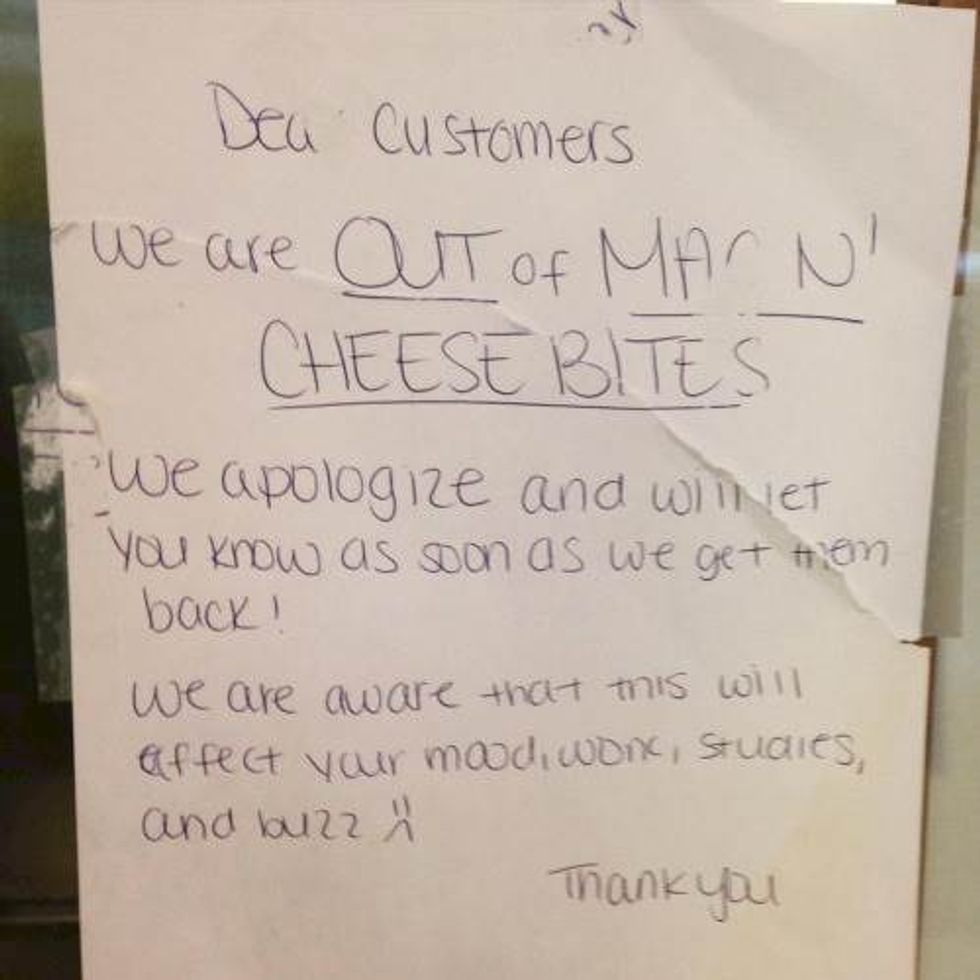 Dea Customers
We are OUT of MAC N'
CHEESE BITES
We apologize and will let
you know as soon as we get them
back!
We are aware that this will
affect your mood, work, studies,
and buzz :(
Thank you